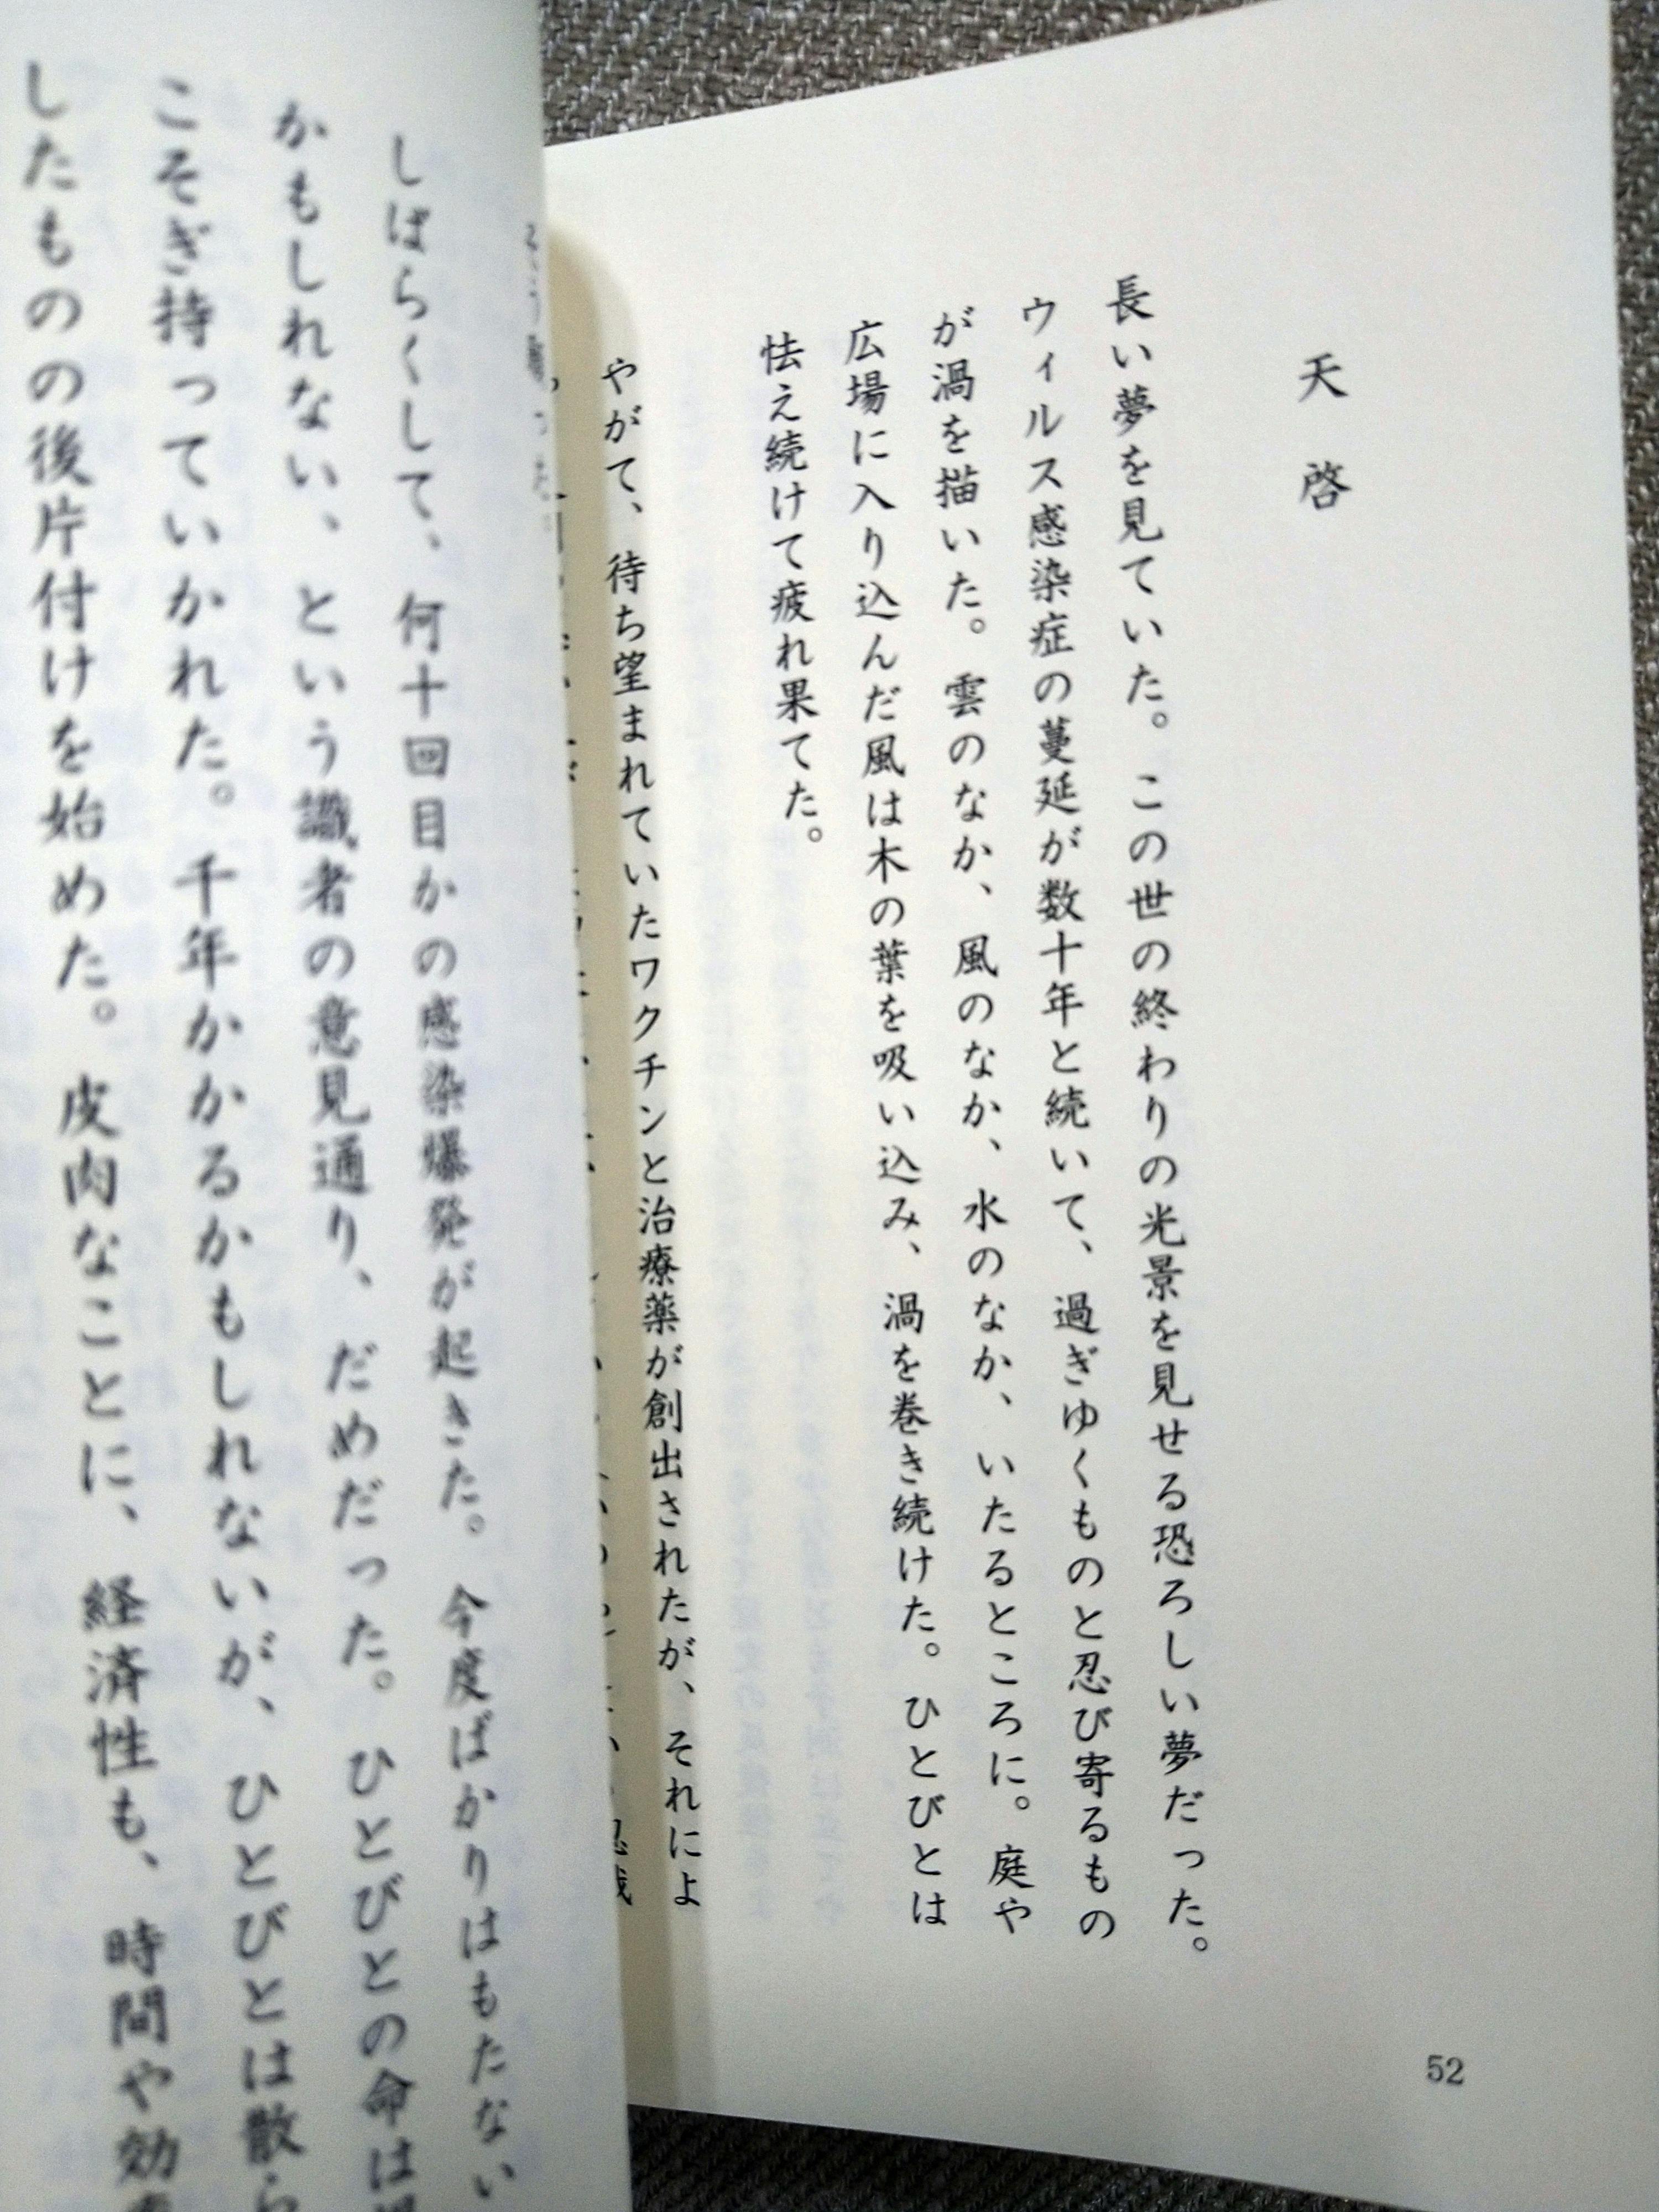 天啓
長い夢を見ていた。この世の終わりの光景を見せる恐ろしい夢だった。
ウィルス感染症の蔓延が数十年と続いて、過ぎゆくものと忍び寄るもの
が渦を描いた。雲のなか、風のなか、水のなか、いたるところに。庭や
広場に入り込んだ風は木の葉を吸い込み、渦を巻き続けた。ひとびとは
怯え続けて疲れ果てた。
やがて、待ち望まれていたワクチンと治療薬が創出されたが、それによ
52
しばらくして、何十回目かの感染爆発が起きた。今度ばかりはもたない
かもしれない、という識者の意見通り、だめだった。ひとびとの命は
こそぎ持っていかれた。千年かかるかもしれないが、ひとびとは散ら
したものの後片付けを始めた。皮肉なことに、経済性も、時間や効